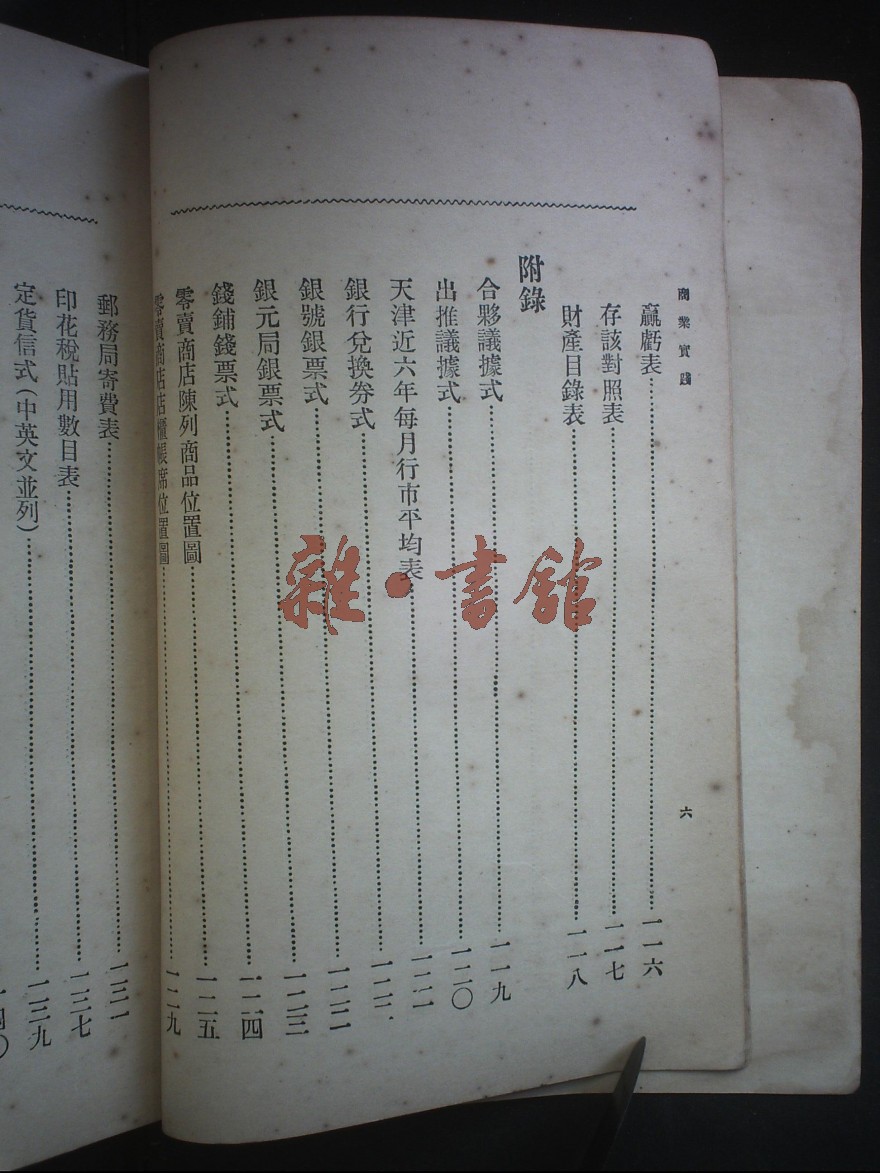 商業實踐
六
贏虧表……一一六
存該對照表……一一七
財產目錄表……一一八
附錄
合夥議據式……一一九
出推議據式……一二〇
天津近六年每月行市平均表……一二一
銀行兌換券式……一二二
銀號銀票式……一二二
銀元局銀票式……一二三
錢鋪錢票式……一二四
零賣商店陳列商品位置圖……一二五
零賣商店店櫃帳席位置圖……一二九
郵務局寄費表……一三一
印花稅貼用數目表……一三七
定貨信式(中英文並列)……一三九
一四〇
雜·書館